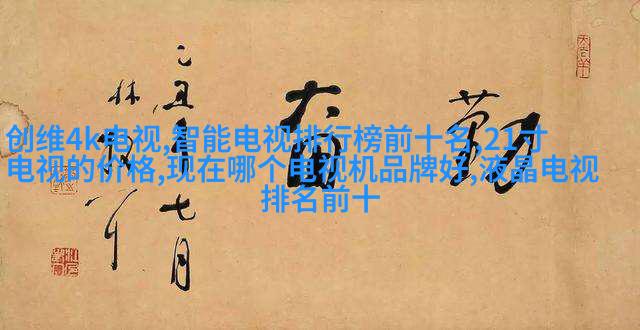 创维4k电视,智能电视排行榜前十名,21寸
电视的价格,现在哪个电视机品牌好,液晶电视
排名前十
勤奮
乙丑年七月
林散耳